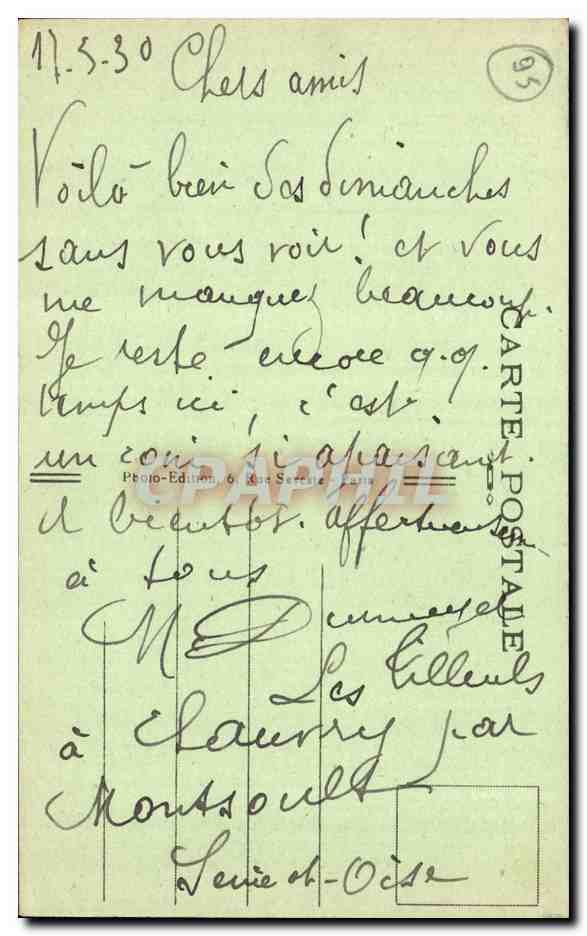 17-5-30
Chers amis
95
Voilà bien des dimanches
sans vous voir! et vous
me manquez beaucoup.
Je reste encore q.q.
temps ici, c'est
un coin si apaisant.
Photo-Edition, 6, Rue - Paris
CPAPHIL
CARTE POSTALE
A bientôt. affectueusement
à tous
M
Les Tilleuls
à Chauvry par
Montsoult
Seine et-Oise